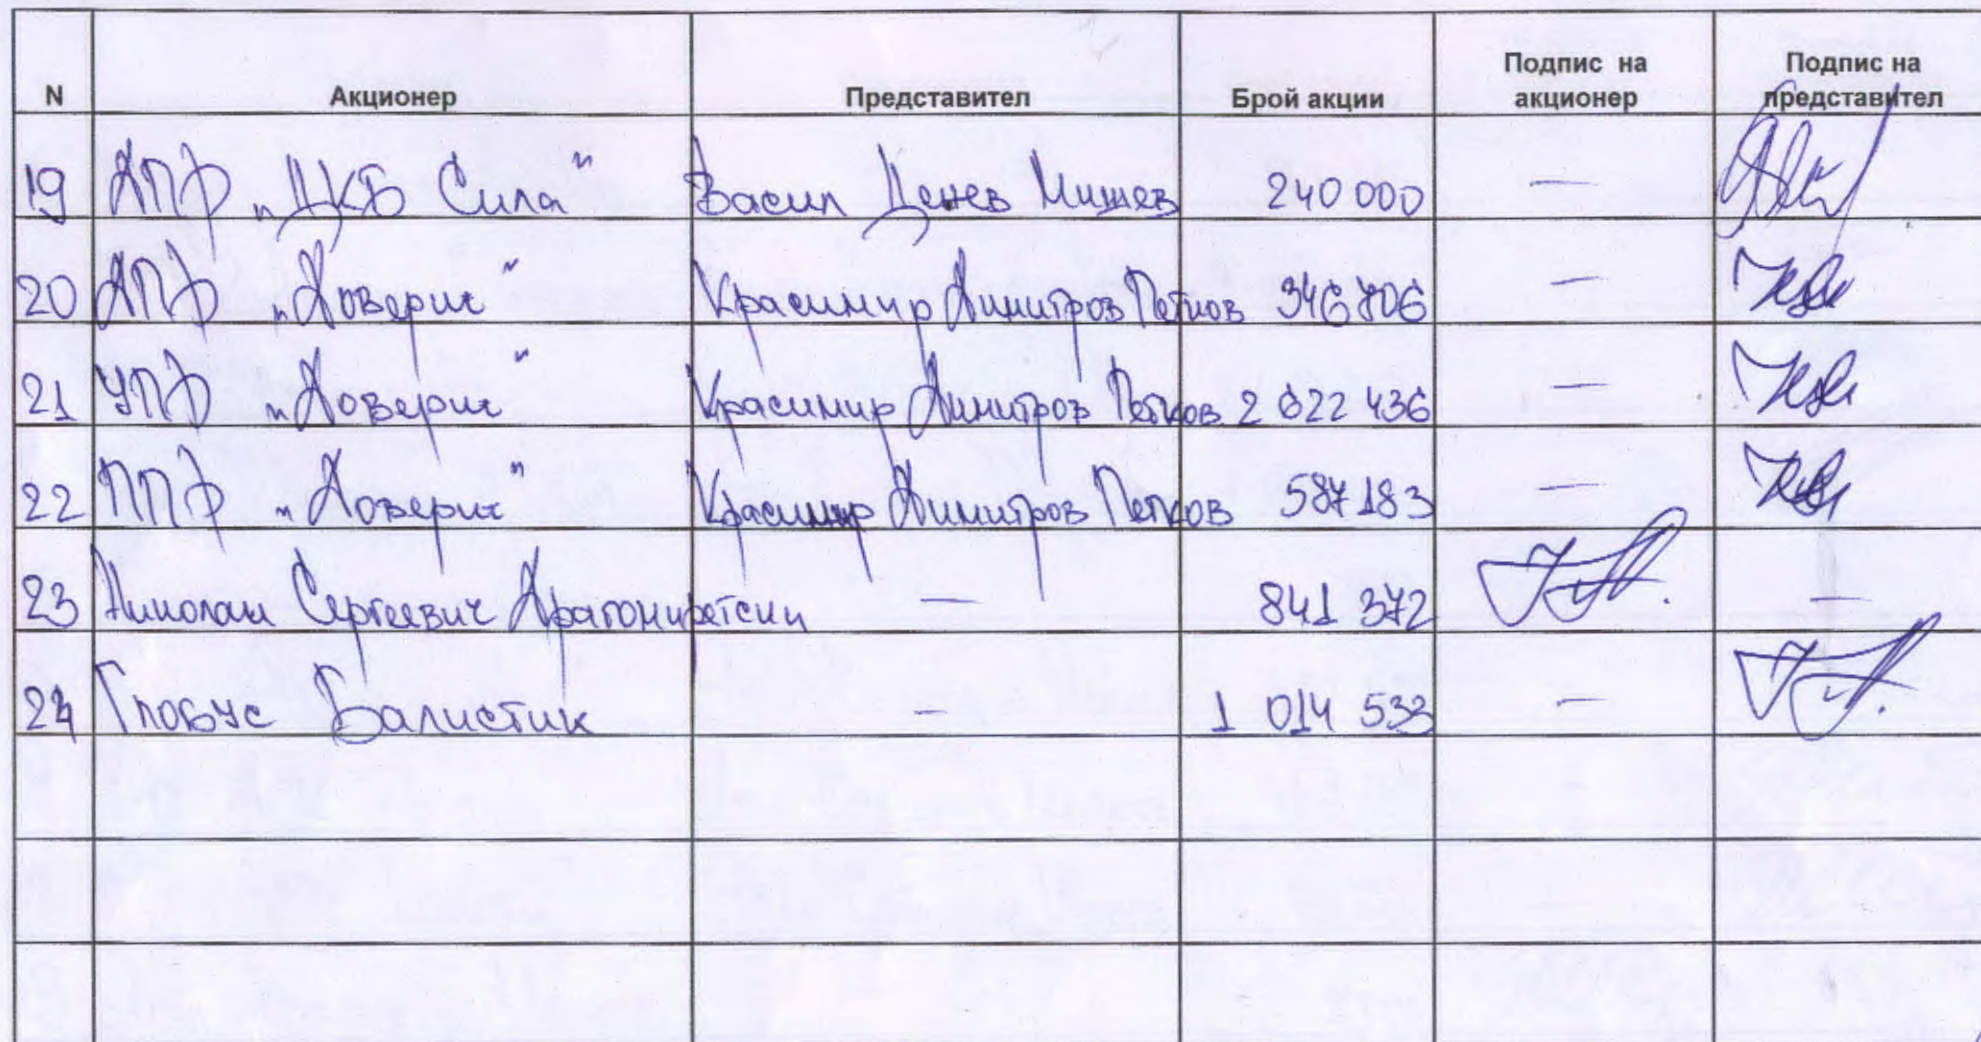 N Акционер Представител Брой акции Подпис на акционер Подпис на представител
19 ДПФ „ЦКБ Сила" Васил Денев Мишев 240 000 —
20 ДПФ „Доверие" Красимир Димитров Петков 346 706 —
21 УПФ „Доверие" Красимир Димитров Петков 2 622 436 —
22 ППФ „Доверие" Красимир Димитров Петков 587 183 —
23 Николай Сергеевич 841 372 —
24 Глобус Балистик — 1 014 533 —